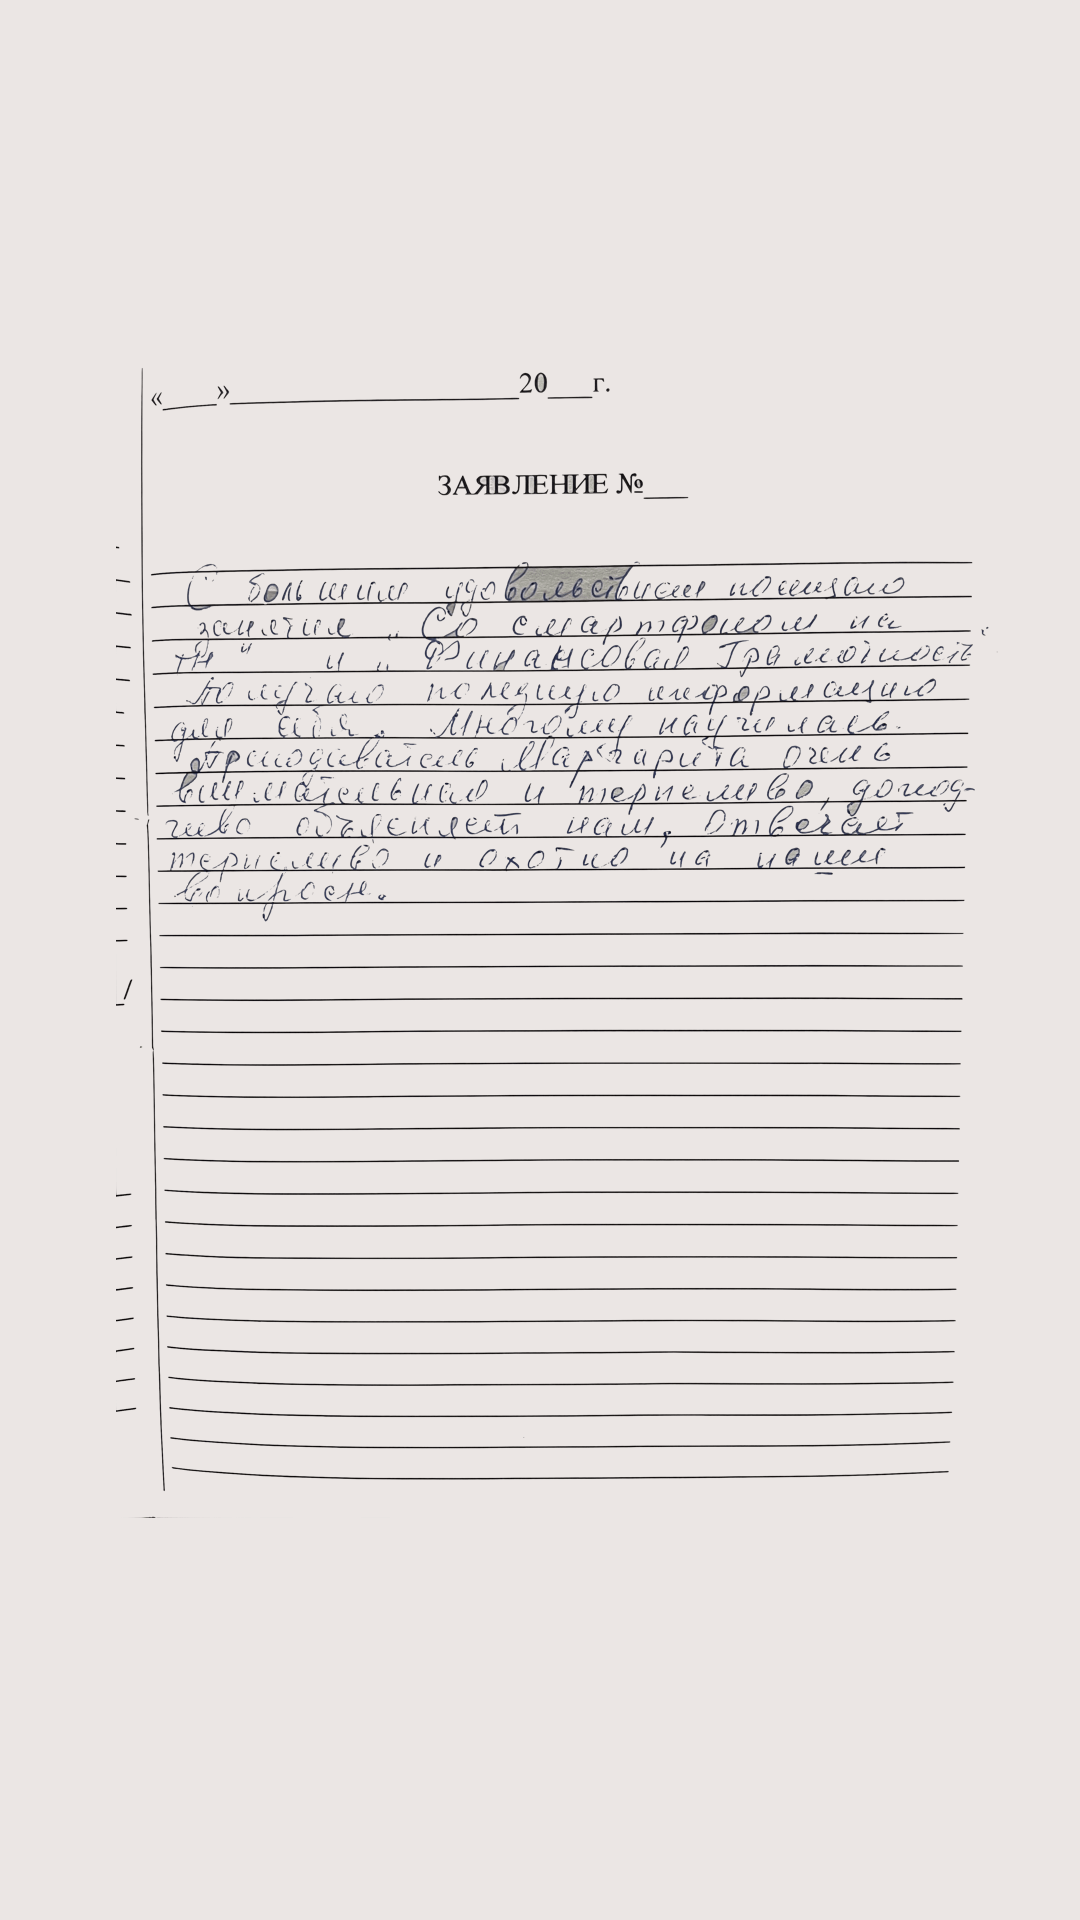 «____»____________________20___г.
ЗАЯВЛЕНИЕ №___
С большим удовольствием посещаю
занятия „Со смартфоном на
ты" и „Финансовая Грамотность"
Получаю полезную информацию
для себя. Многому научилась.
Преподаватель Маргарита очень
внимательная и терпеливо, доход-
чиво объясняет нам. Отвечает
терпеливо и охотно на наши
вопросы.